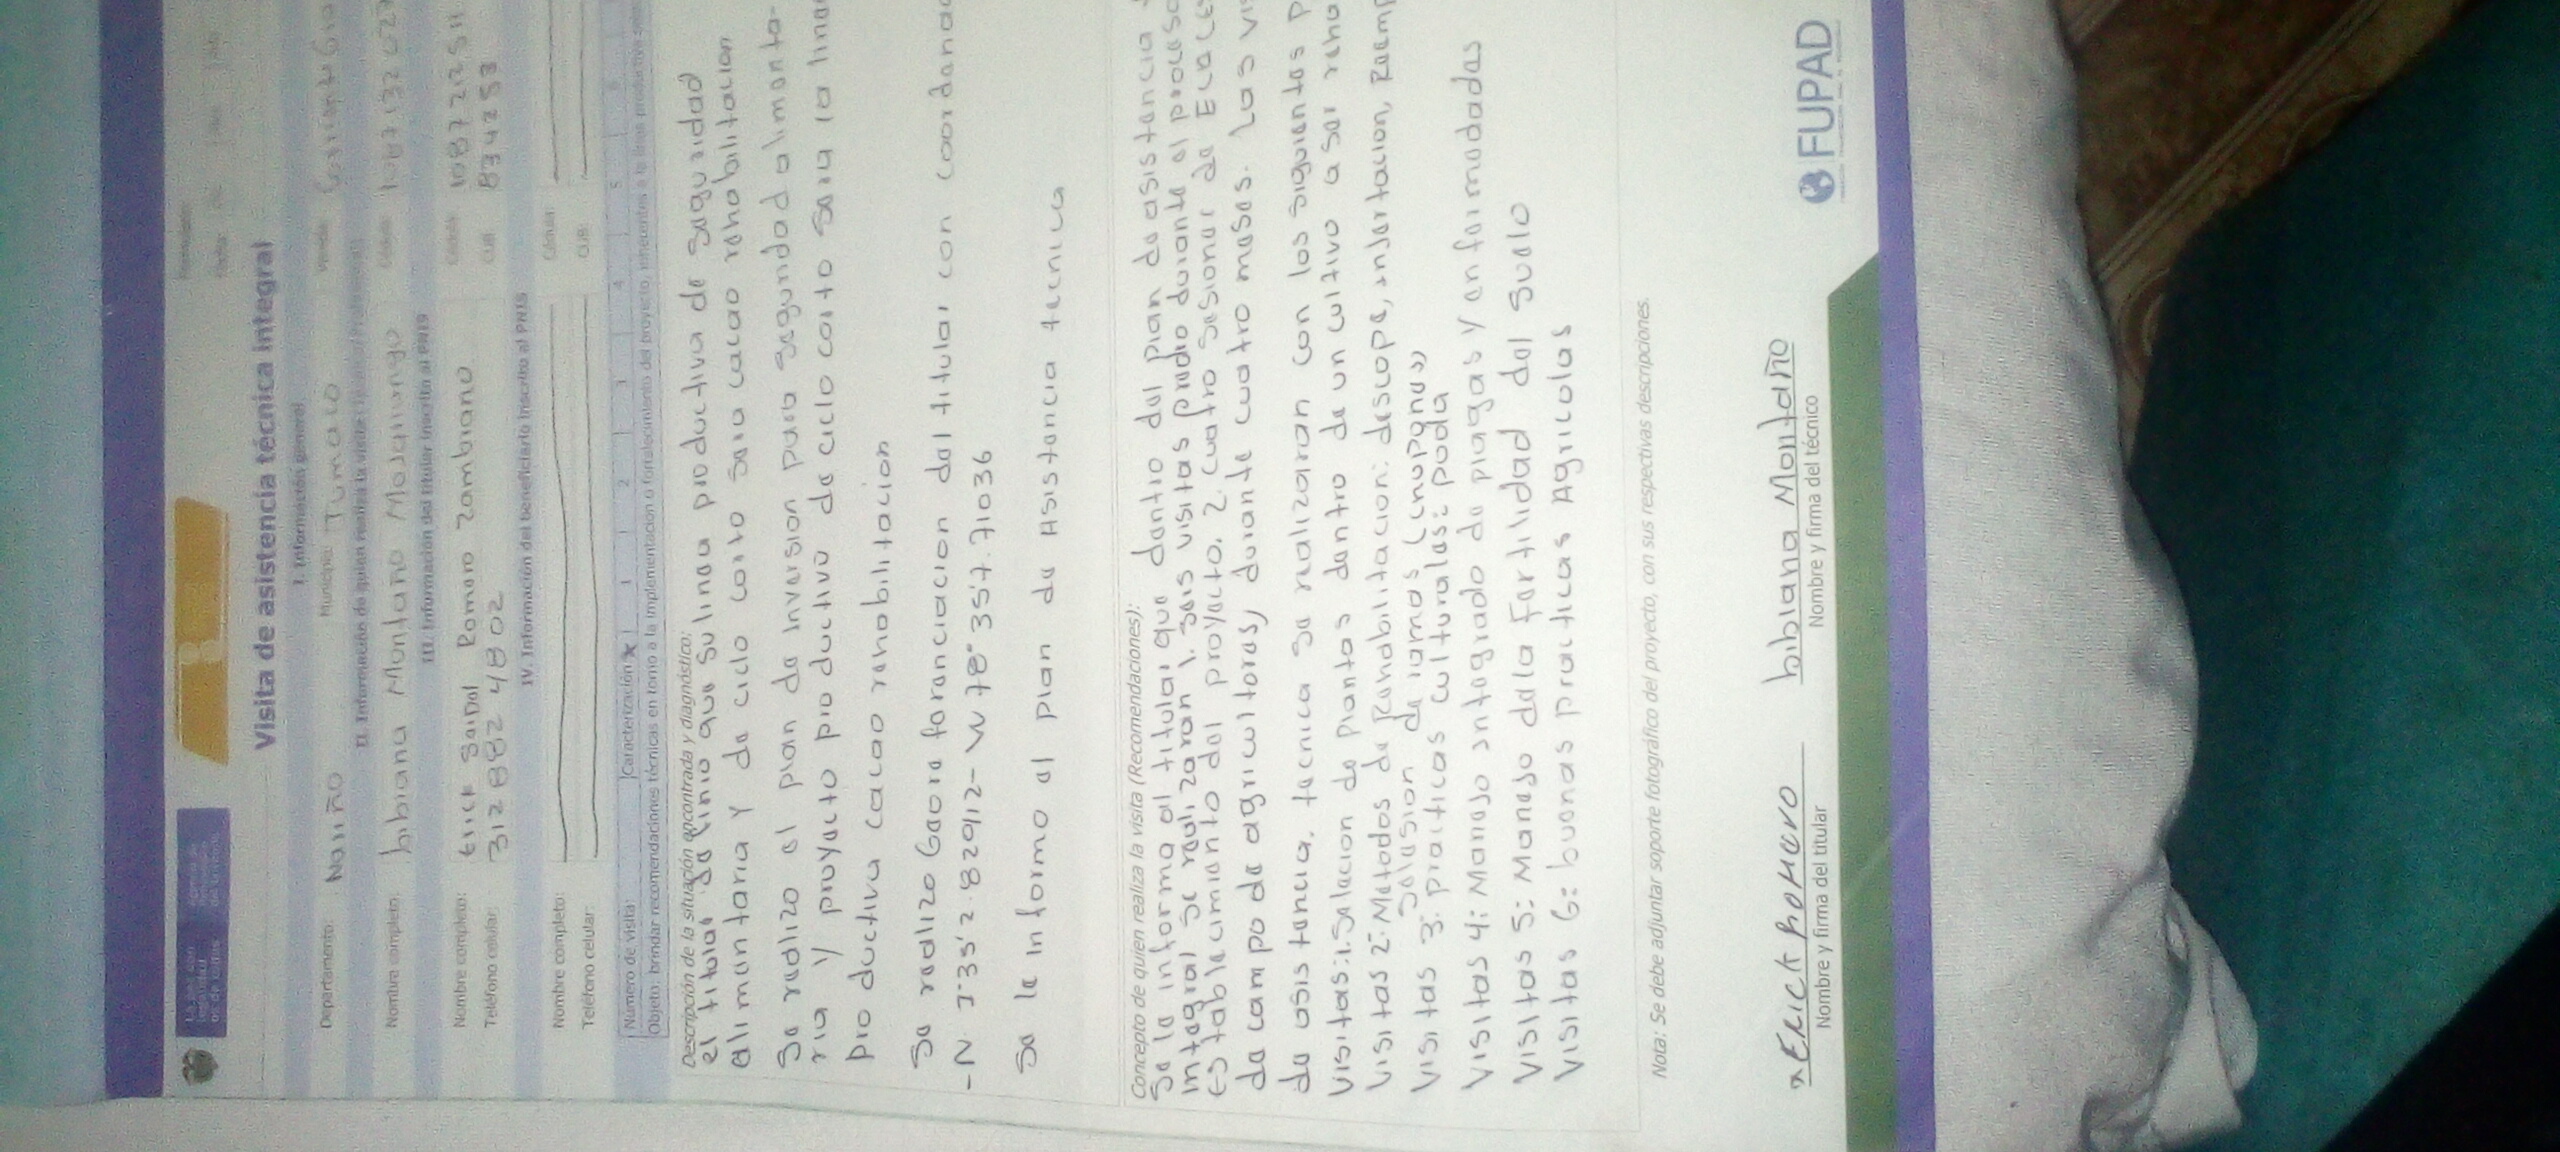 Visita de asistencia técnica integral
I. Información general
Departamento: Nariño Municipio: Tumaco Vereda:
II. Información de quien realiza la visita
Nombre completo: bibiana Montaño Cédula:
III. Información del titular inscrito al PNIS
Nombre completo: Erick Saidal Romaro Zambrano Cédula: 1087212511
Teléfono celular: 3128824802 CUB 834253
IV. Información del beneficiario inscrito al PNIS
Nombre completo: Cédula:
Teléfono celular: CUB
Número de visita: Caracterización X 1 2 3 4 5 6
Objeto: brindar recomendaciones técnicas en torno a la implementación o fortalecimiento del proyecto, inherentes a la línea productiva
Descripción de la situación encontrada y diagnóstico:
el titular dafinio que su linea productiva de saguridad
alimantaria y de ciclo corto sara cacao rehabilitacion
Sa realizo el plan de inversion para segundad alimenta-
ria y proyecto productivo de ciclo corto sara la linea
productiva cacao rehabilitacion
Sa realizo Gaorefaranciacion del titular con
-N 1°35'2.82912- W 78°35'7.71036
Sa le informo el plan de Asistencia tecnica
Concepto de quien realiza la visita (Recomendaciones):
Sa la informa al titular que dentro del plan de asistancia
integral se realizaran 1. seis visitas predio durante el proceso
establecimiento del proyecto. 2 cuatro sesiones de ECA
de campo de agricultores) durante cuatro meses. Las
de asistencia. tecnica se realizaran con los siguientes
visitas:1. Selacion de plantas dentro de un cultivo a ser
visitas 2: Matodos de Rehabilitacion: descope, insertacion,
Selasion de ramas (chupones)
visitas 3: practicas culturales: poda
visitas 4: Manejo integrado de plagas y enfermedades
visitas 5: Manejo dela Fertilidad del Suelo
visitas 6: buenas practicas Agricolas
Nota: Se debe adjuntar soporte fotográfico del proyecto, con sus respectivas descripciones.
x ERICK ROMERO bibiana Montaño
Nombre y firma del titular Nombre y firma del técnico
FUPAD